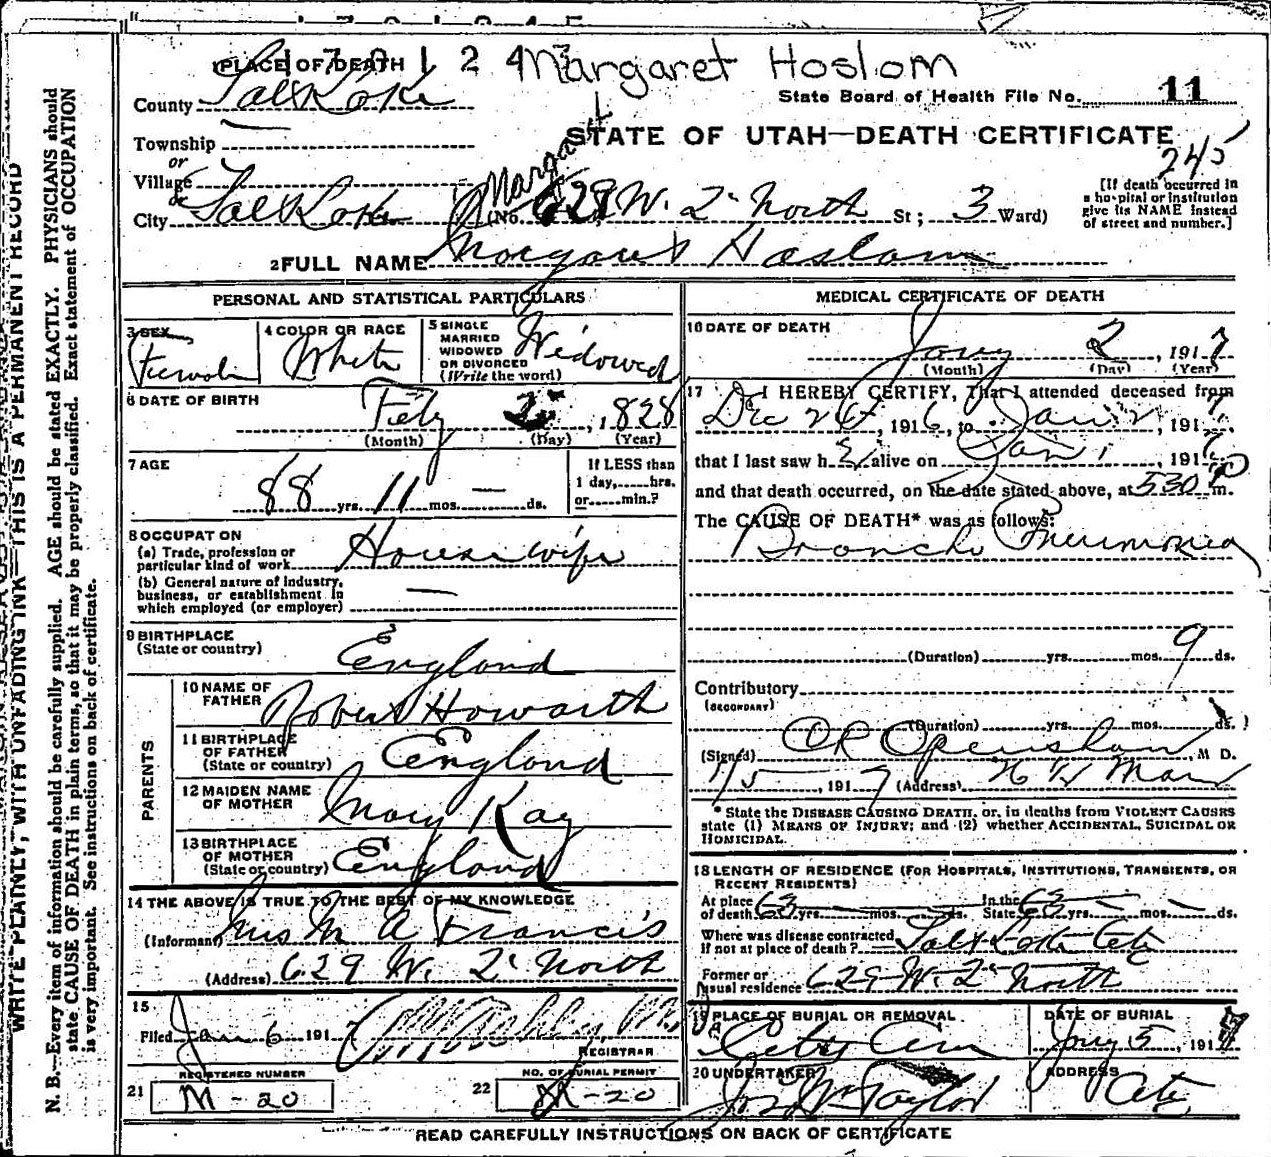 1 PLACE OF DEATH 1 2 4 Margaret Hoslom
County Salt Lake
State Board of Health File No. 11
Township
STATE OF UTAH—DEATH CERTIFICATE
or
Village
245
or
City Salt Lake (No. 629 W. 2" North St; 3 Ward)
Margaret
[If death occurred in
a hospital or institution
give its NAME instead
of street and number.]
2 FULL NAME Margaret Haslam
PERSONAL AND STATISTICAL PARTICULARS
3 SEX Female
4 COLOR OR RACE White
5 SINGLE
MARRIED
WIDOWED
OR DIVORCED
(Write the word) Widowed
6 DATE OF BIRTH
Feby 2", 1828
(Month) (Day) (Year)
7 AGE
88 yrs. 11 mos. — ds.
If LESS than
1 day,.....hrs.
or.....min.?
8 OCCUPATION
(a) Trade, profession or
particular kind of work Housewife
(b) General nature of industry,
business, or establishment in
which employed (or employer) —
9 BIRTHPLACE
(State or country) England
PARENTS
10 NAME OF
FATHER Robert Howarth
11 BIRTHPLACE
OF FATHER
(State or country) England
12 MAIDEN NAME
OF MOTHER Mary Kay
13 BIRTHPLACE
OF MOTHER
(State or country) England
14 THE ABOVE IS TRUE TO THE BEST OF MY KNOWLEDGE
(Informant) Mrs M A Francis
(Address) 629 W. 2" North
15
Filed Jan 6 191 7
REGISTRAR
REGISTERED NUMBER
21 M-20
NO. OF BURIAL PERMIT
22 M-20
MEDICAL CERTIFICATE OF DEATH
16 DATE OF DEATH
Jany 2, 1917
(Month) (Day) (Year)
17 I HEREBY CERTIFY, That I attended deceased from
Dec 26, 1916, to Jan 2, 1917
that I last saw her alive on Jan 1 191
and that death occurred, on the date stated above, at 530 P m.
The CAUSE OF DEATH* was as follows:
Broncho Pneumonia
(Duration) yrs. mos. 9 ds.
Contributory
(SECONDARY)
(Duration) yrs. mos. ds.
(Signed) CR Openshaw, M D.
1/5, 1917 (Address) Main
* State the DISEASE CAUSING DEATH, or, in deaths from VIOLENT CAUSES
state (1) MEANS OF INJURY; and (2) whether ACCIDENTAL, SUICIDAL OR
HOMICIDAL.
18 LENGTH OF RESIDENCE (FOR HOSPITALS, INSTITUTIONS, TRANSIENTS, OR
RECENT RESIDENTS)
At place
of death 63 yrs. — mos. — ds. In the
State 63 yrs. — mos. — ds.
Where was disease contracted,
if not at place of death? Salt Lake City
Former or
usual residence 629 W. 2" North
19 PLACE OF BURIAL OR REMOVAL
City Cem
DATE OF BURIAL
Jany 5, 1917
20 UNDERTAKER
Jos Wm Taylor
ADDRESS
City
READ CAREFULLY INSTRUCTIONS ON BACK OF CERTIFICATE
WRITE PLAINLY, WITH UNFADING INK—THIS IS A PERMANENT RECORD
N. B.—Every item of information should be carefully supplied. AGE should be stated EXACTLY. PHYSICIANS should
state CAUSE OF DEATH in plain terms, so that it may be properly classified. Exact statement of OCCUPATION
is very important. See instructions on back of certificate.